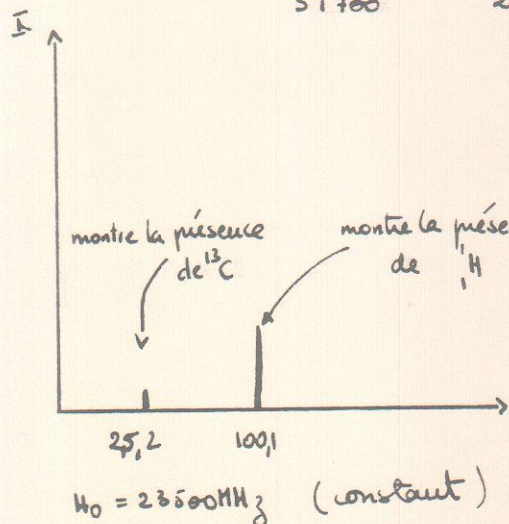 51700 2
I
montre la présence
de ¹³C
montre la prése
de ¹₁H
25,2
100,1
H₀ = 23500MHz (constant)